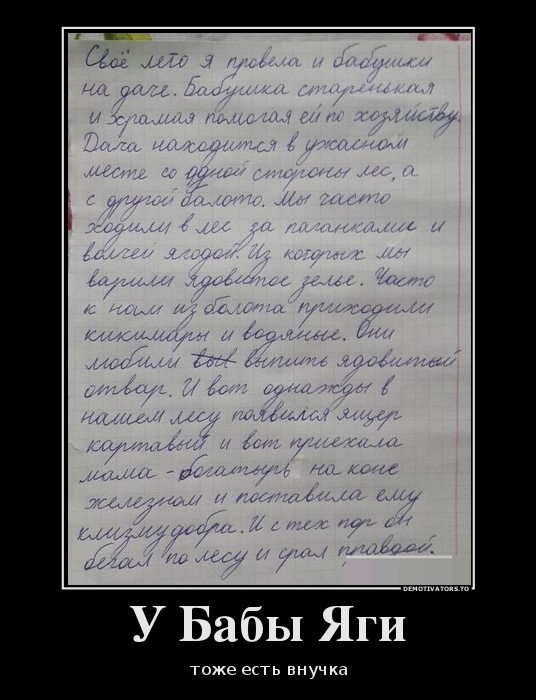 Своё лето я провела и бабушки
на даче. Бабушка старенькая
и храмая помогая ей по хозяйству.
Дача находится в ужасном
месте со одной стороны лес, а
с другой балото. Мы часто
ходили в лес за паганками и
волчей ягодой. Из которых мы
варили ядовитое зелье. Часто
к нам из болота приходили
кикимары и водяные. Они
любили выпить ядовитый
отвар. И вот однажды в
нашем лесу появился ящер
картавый и вот приехала
мама - богатырь на коне
железном и поставила ему
клизму добра. И с тех пор он
бегал по лесу и срал правдой.
DEMOTIVATORS.TO
У Бабы Яги
тоже есть внучка